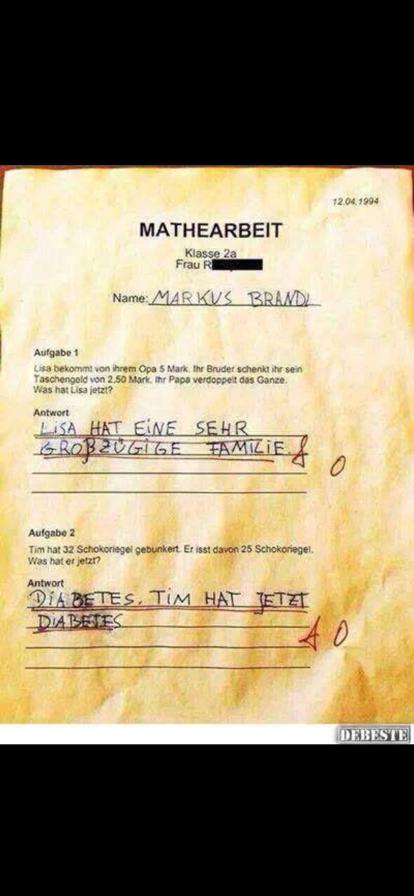 12.04.1994
MATHEARBEIT
Klasse 2a
Frau R
Name: MARKUS BRANDL
Aufgabe 1
Lisa bekommt von ihrem Opa 5 Mark. Ihr Bruder schenkt ihr sein
Taschengeld von 2,50 Mark. Ihr Papa verdoppelt das Ganze.
Was hat Lisa jetzt?
Antwort
LISA HAT EINE SEHR
GROßZÜGIGE FAMILIE.
0
Aufgabe 2
Tim hat 32 Schokoriegel gebunkert. Er isst davon 25 Schokoriegel.
Was hat er jetzt?
Antwort
DIABETES. TIM HAT JETZT
DIABETES
0
DEBESTE